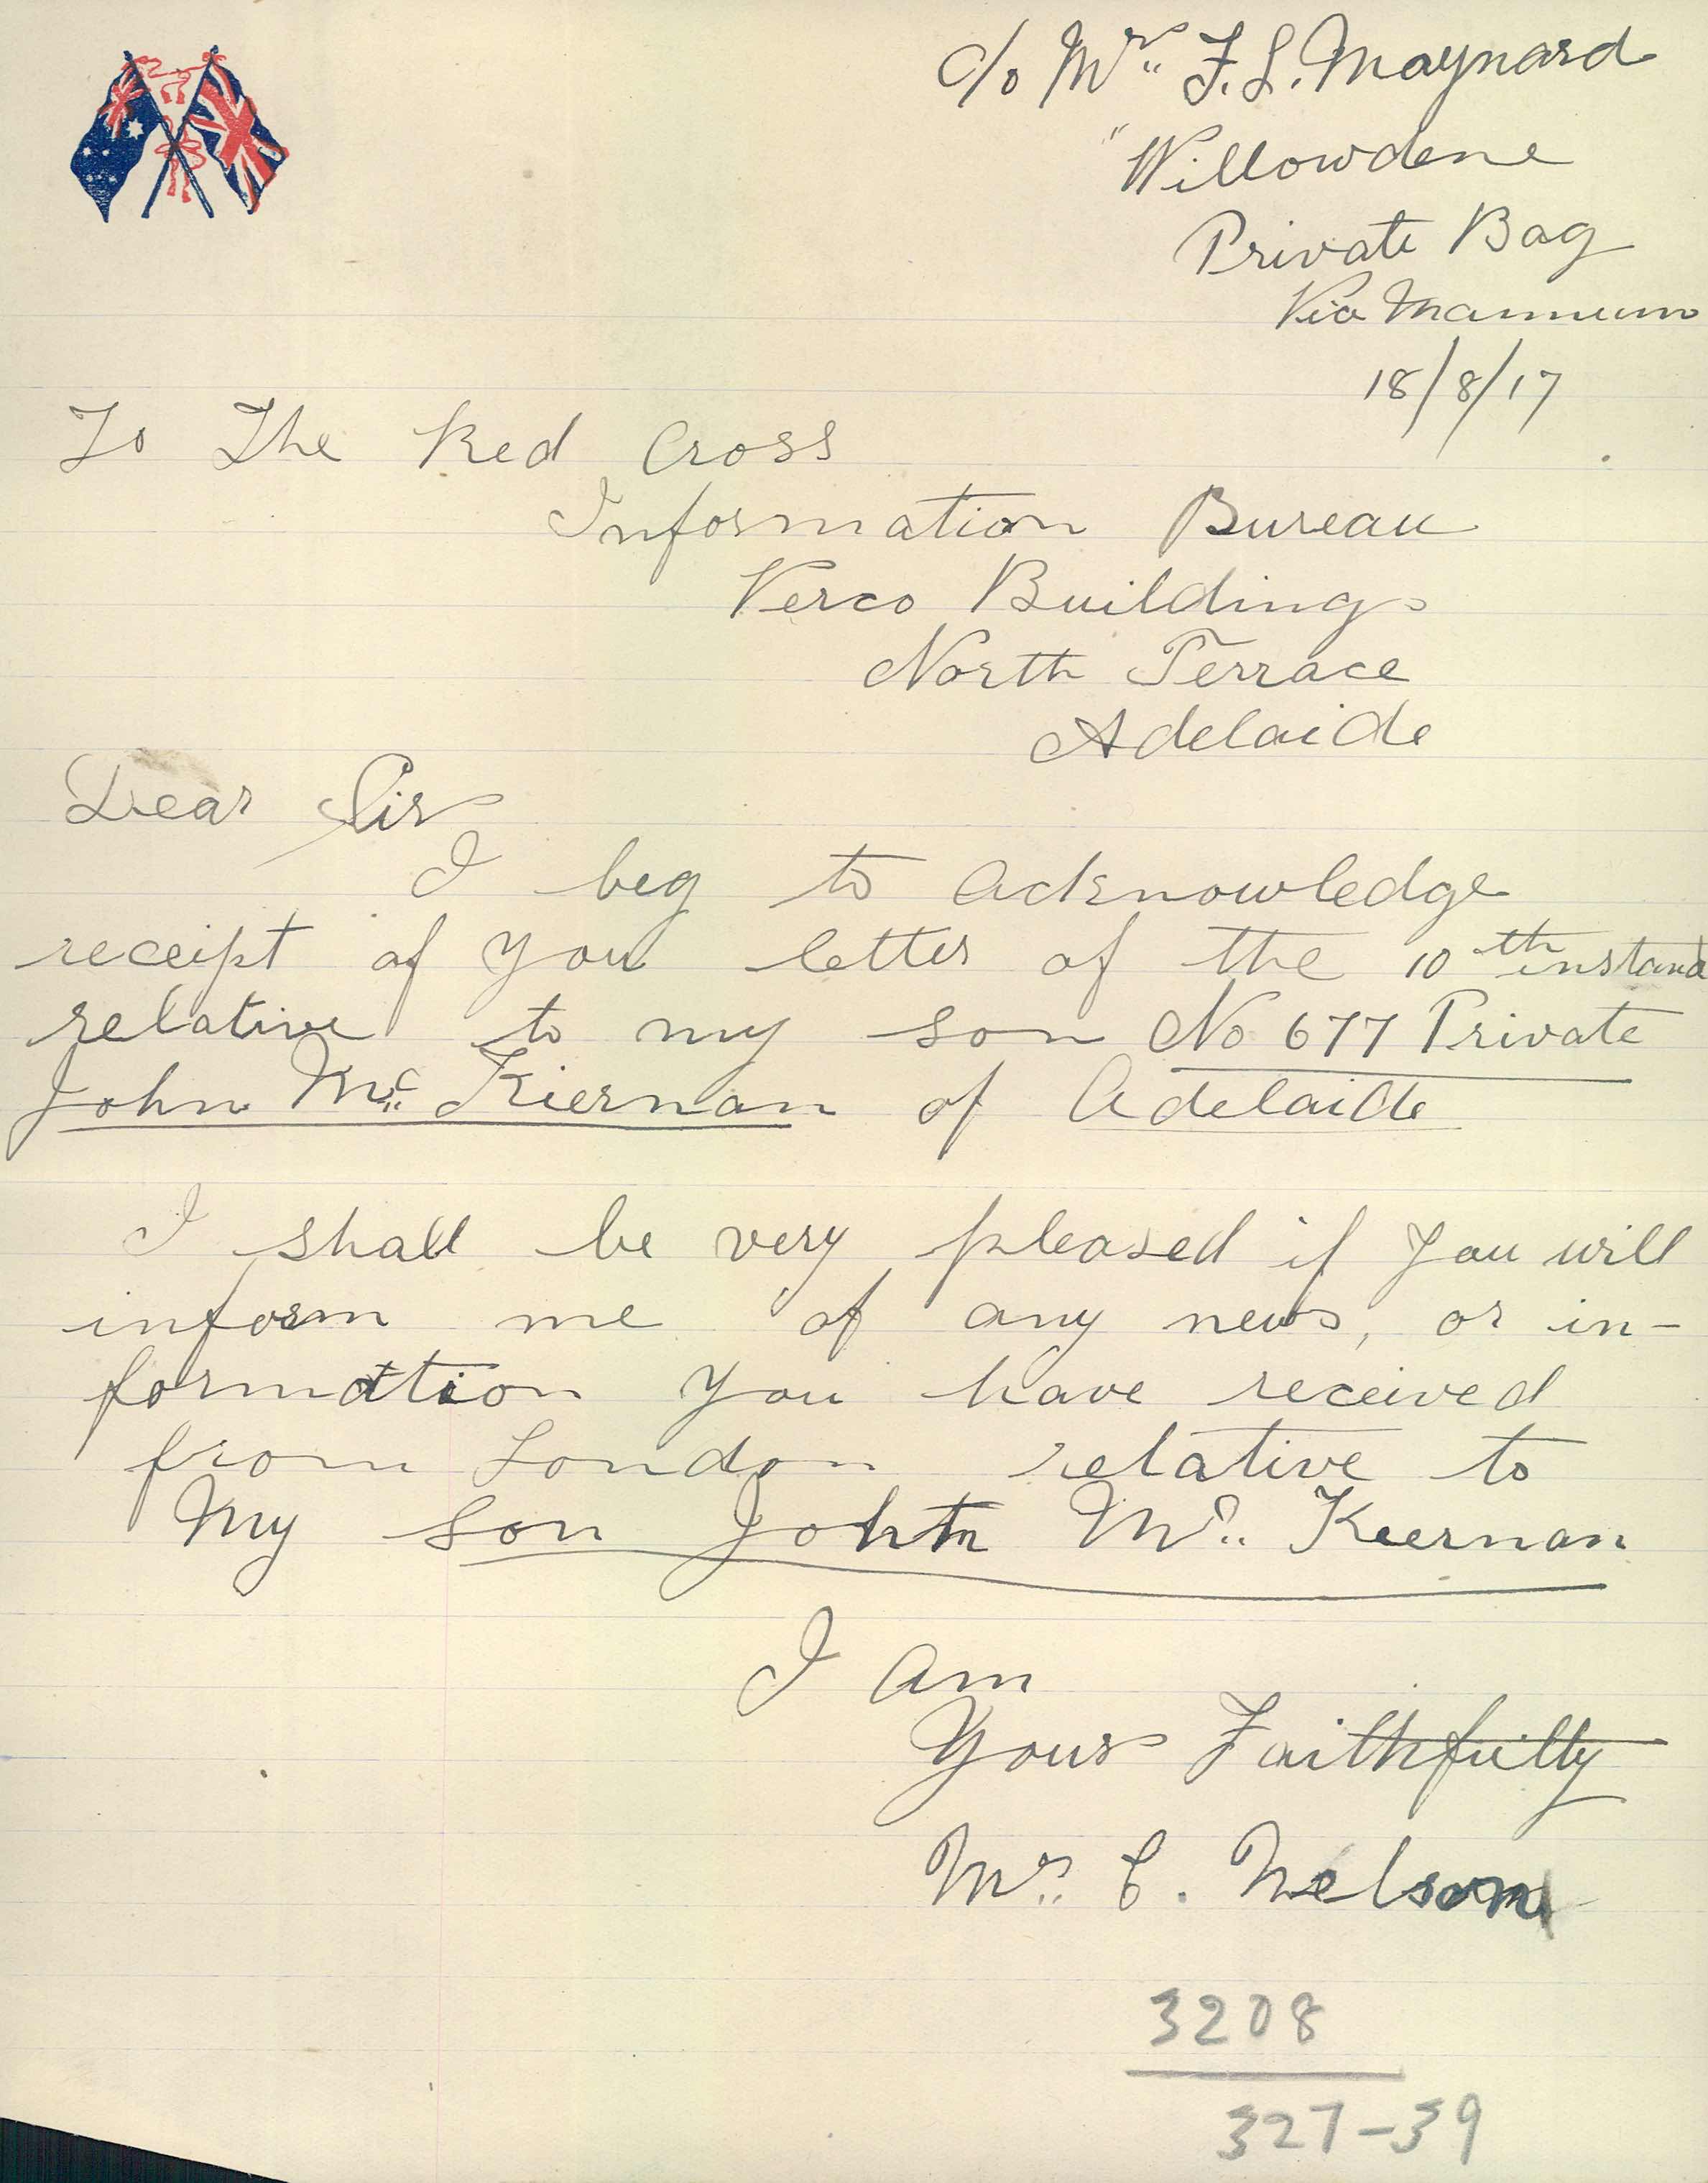 c/o Mrs F. L. Maynard
"Willowdene
Private Bag
Via Mannum
18/8/17
To The Red Cross
Information Bureau
Verco Buildings
North Terrace
Adelaide
Dear Sir
I beg to acknowledge
receipt of you letter of the 10th instand
relative to my son No 677 Private
John Mc Kiernan of Adelaide
I shall be very pleased if you will
inform me of any news, or in-
formation you have received
from London relative to
My son John Mc Keernan
I am
Yours Faithfully
Mrs C. Nelson
3208
327-39